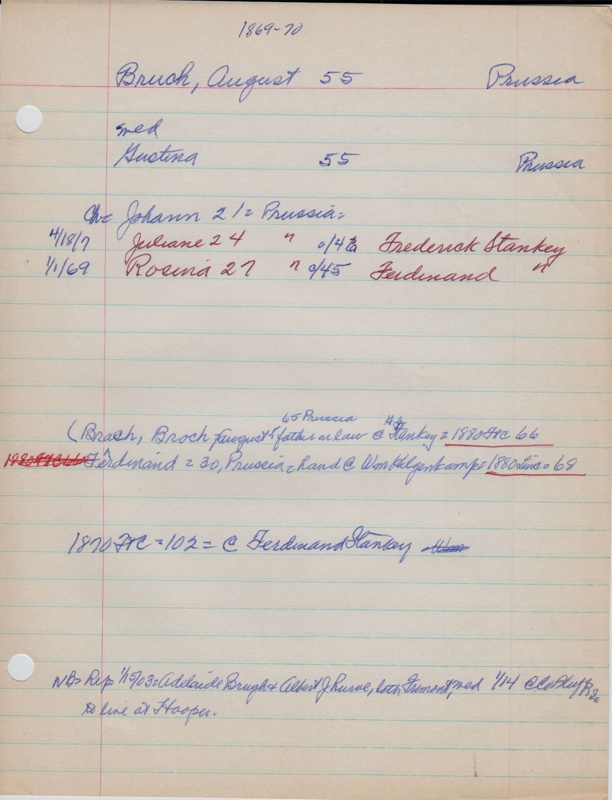 1869-70
Bruch, August 55 Prussia
med
Gustina 55 Prussia
Ch= Johann 21= Prussia=
4/18/7 Juliane 24 " Frederick Stankey
1/1/69 Rosina 27 " c/45 Ferdinand "
65 Prussia
(Brach, Broch August= father in law @ Stankey= 1880 FtC 66
Ferdinand = 30, Prussia= hand @ Wm = 1880 = 68
1870 FtC = 102 = @ Ferdinand Stankey
NB= Rep 1/15/03= Adelaide Brugh & Albert J, both Fremont, med 1/14 @ Co Bluffs
to live at Hooper.